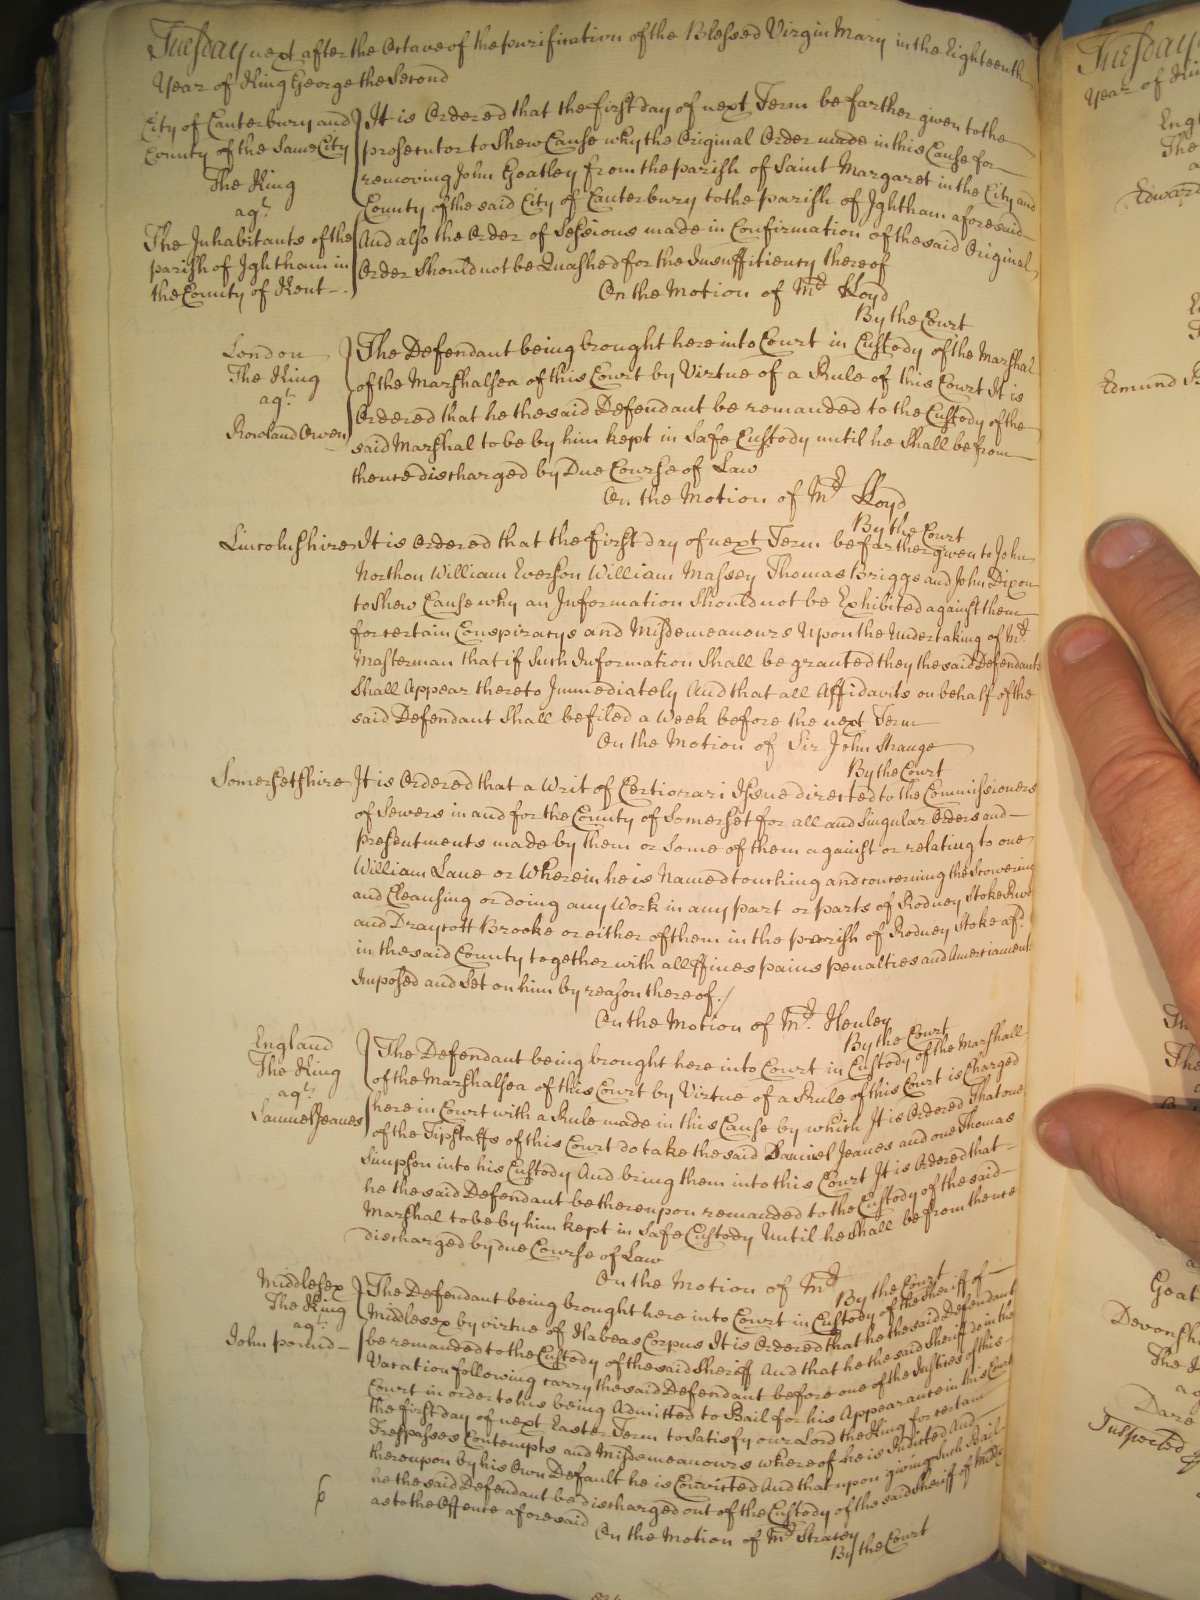 Tuesday next after the Octave of the purification of the Blessed Virgin Mary in the Eighteenth
Year of King George the Second
City of Canterbury and
County of the Same City
The King
agt
The Inhabitants of the
parish of Ightham in
the County of Kent
It is Ordered that the first day of next Term be farther given to the
prosecutor to Shew Cause why the Original Order made in this Cause for
removing John Goatley from the parish of Saint Margaret in the City and
County of the said City of Canterbury to the parish of Ightham aforesaid
And also the Order of Sessions made in Confirmation of the said Original
Order Should not be Quashed for the Insufficiency thereof
On the Motion of Mr Lloyd
By the Court
London
The King
agt
Rowland Owen
The Defendant being brought here into Court in Custody of the Marshal
of the Marshalsea of this Court by Virtue of a Rule of this Court It is
Ordered that he the said Defendant be remanded to the Custody of the
said Marshal to be by him kept in Safe Custody until he Shall be from
thence discharged by Due Course of Law
On the Motion of Mr Lloyd
By the Court
Lincolnshire It is Ordered that the first day of next Term be farther given to John
Northon William Everson William Massey Thomas Briggs and John Dixon
to Shew Cause why an Information Should not be Exhibited against them
for certain Conspiracys and Misdemeanours Upon the Undertaking of Mr
Masterman that if Such Information Shall be granted they the said Defendants
Shall Appear thereto Immediately And that all Affidavits on behalf of the
said Defendant Shall be filed a Week before the next Term
On the Motion of Sir John Strange
By the Court
Somersetshire It is Ordered that a Writ of Certiorari Issue directed to the Commissioners
of Sewers in and for the County of Somerset for all and Singular Orders and
presentments made by them or Some of them against or relating to one
William Lane or Wherein he is Named touching and concerning the Scowering
and Cleansing or doing any Work in any part or parts of Rodney Stoke
and Draycott Brooke or either of them in the parish of Rodney Stoke afd
in the said County together with all ffines pains penalties and Amerciaments
Imposed and Set on him by reason thereof
On the Motion of Mr Henley
By the Court
England
The King
agt
Samuel Jeanes
The Defendant being brought here into Court in Custody of the Marshall
of the Marshalsea of this Court by Virtue of a Rule of this Court is Charged
here in Court with a Rule made in this Cause by which It is Ordered That one
of the Tipstaffs of this Court do take the said Samuel Jeanes and one Thomas
Simpson into his Custody And bring them into this Court It is Ordered that
he the said Defendant be thereupon remanded to the Custody of the said
Marshal to be by him kept in Safe Custody Until he Shall be from thence
discharged by due Course of Law
On the Motion of Mr
By the Court
Middlesex
The King
agt
John pound
The Defendant being brought here into Court in Custody of the Sheriff of
Middlesex by virtue of Habeas Corpus It is Ordered that he the said Defendant
be remanded to the Custody of the said Sheriff And that he the said Sheriff do in the
Vacation following carry the said Defendant before one of the Justices of this
Court in order to his being Admitted to Bail for his Appearance in this Court
the first day of next Easter Term to Satisfy our Lord the King for certain
Trespasses Contempts and Misdemeanours whereof he is Indicted And
thereupon by his Own Default he is Convicted And that upon giving Such Bail
he the said Defendant be discharged out of the Custody of the said Sheriff of Middx
as to the Offence aforesaid
On the Motion of Mr Stracey
By the Court
6
Tuesday
Year of
The
Edward
Edmund
The
Goat
Devonsh
The
Dare
Suspected